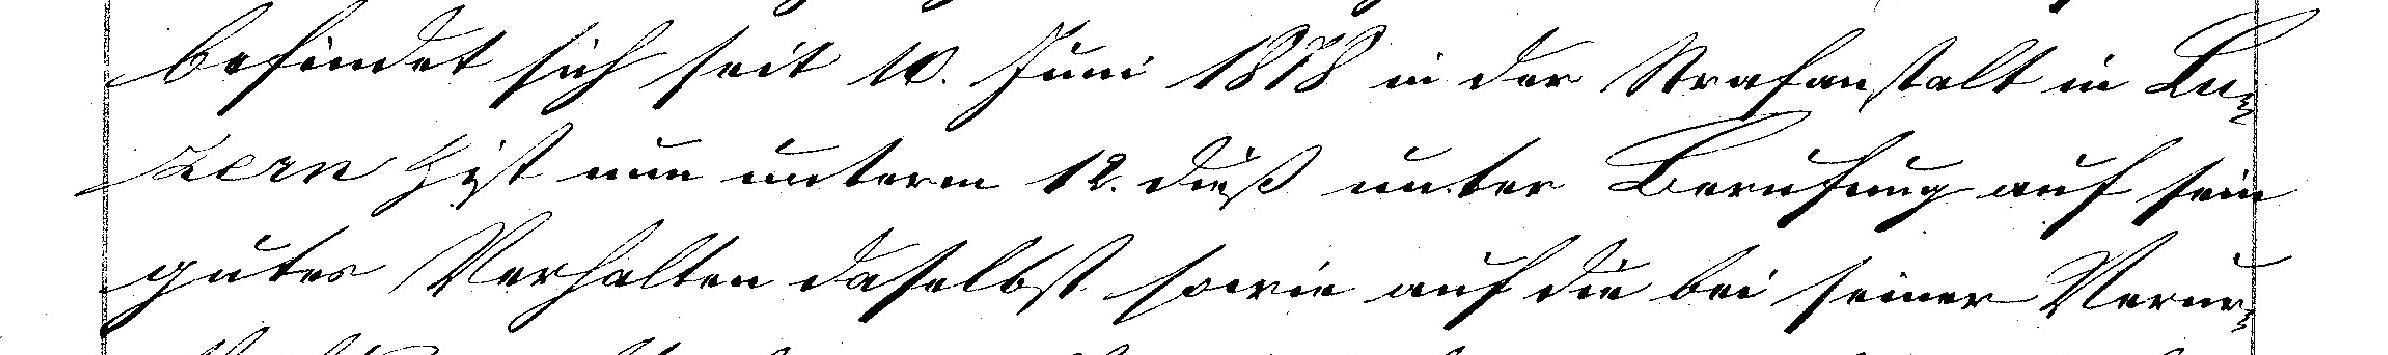 befindet sich seit 10. Juni 1878 in der Strafanstalt in Lu-
zern & ist nun unterm 12. dieß unter Berufung auf sein
gutes Verhalten daselbst sowie auf die bei seiner Verur-